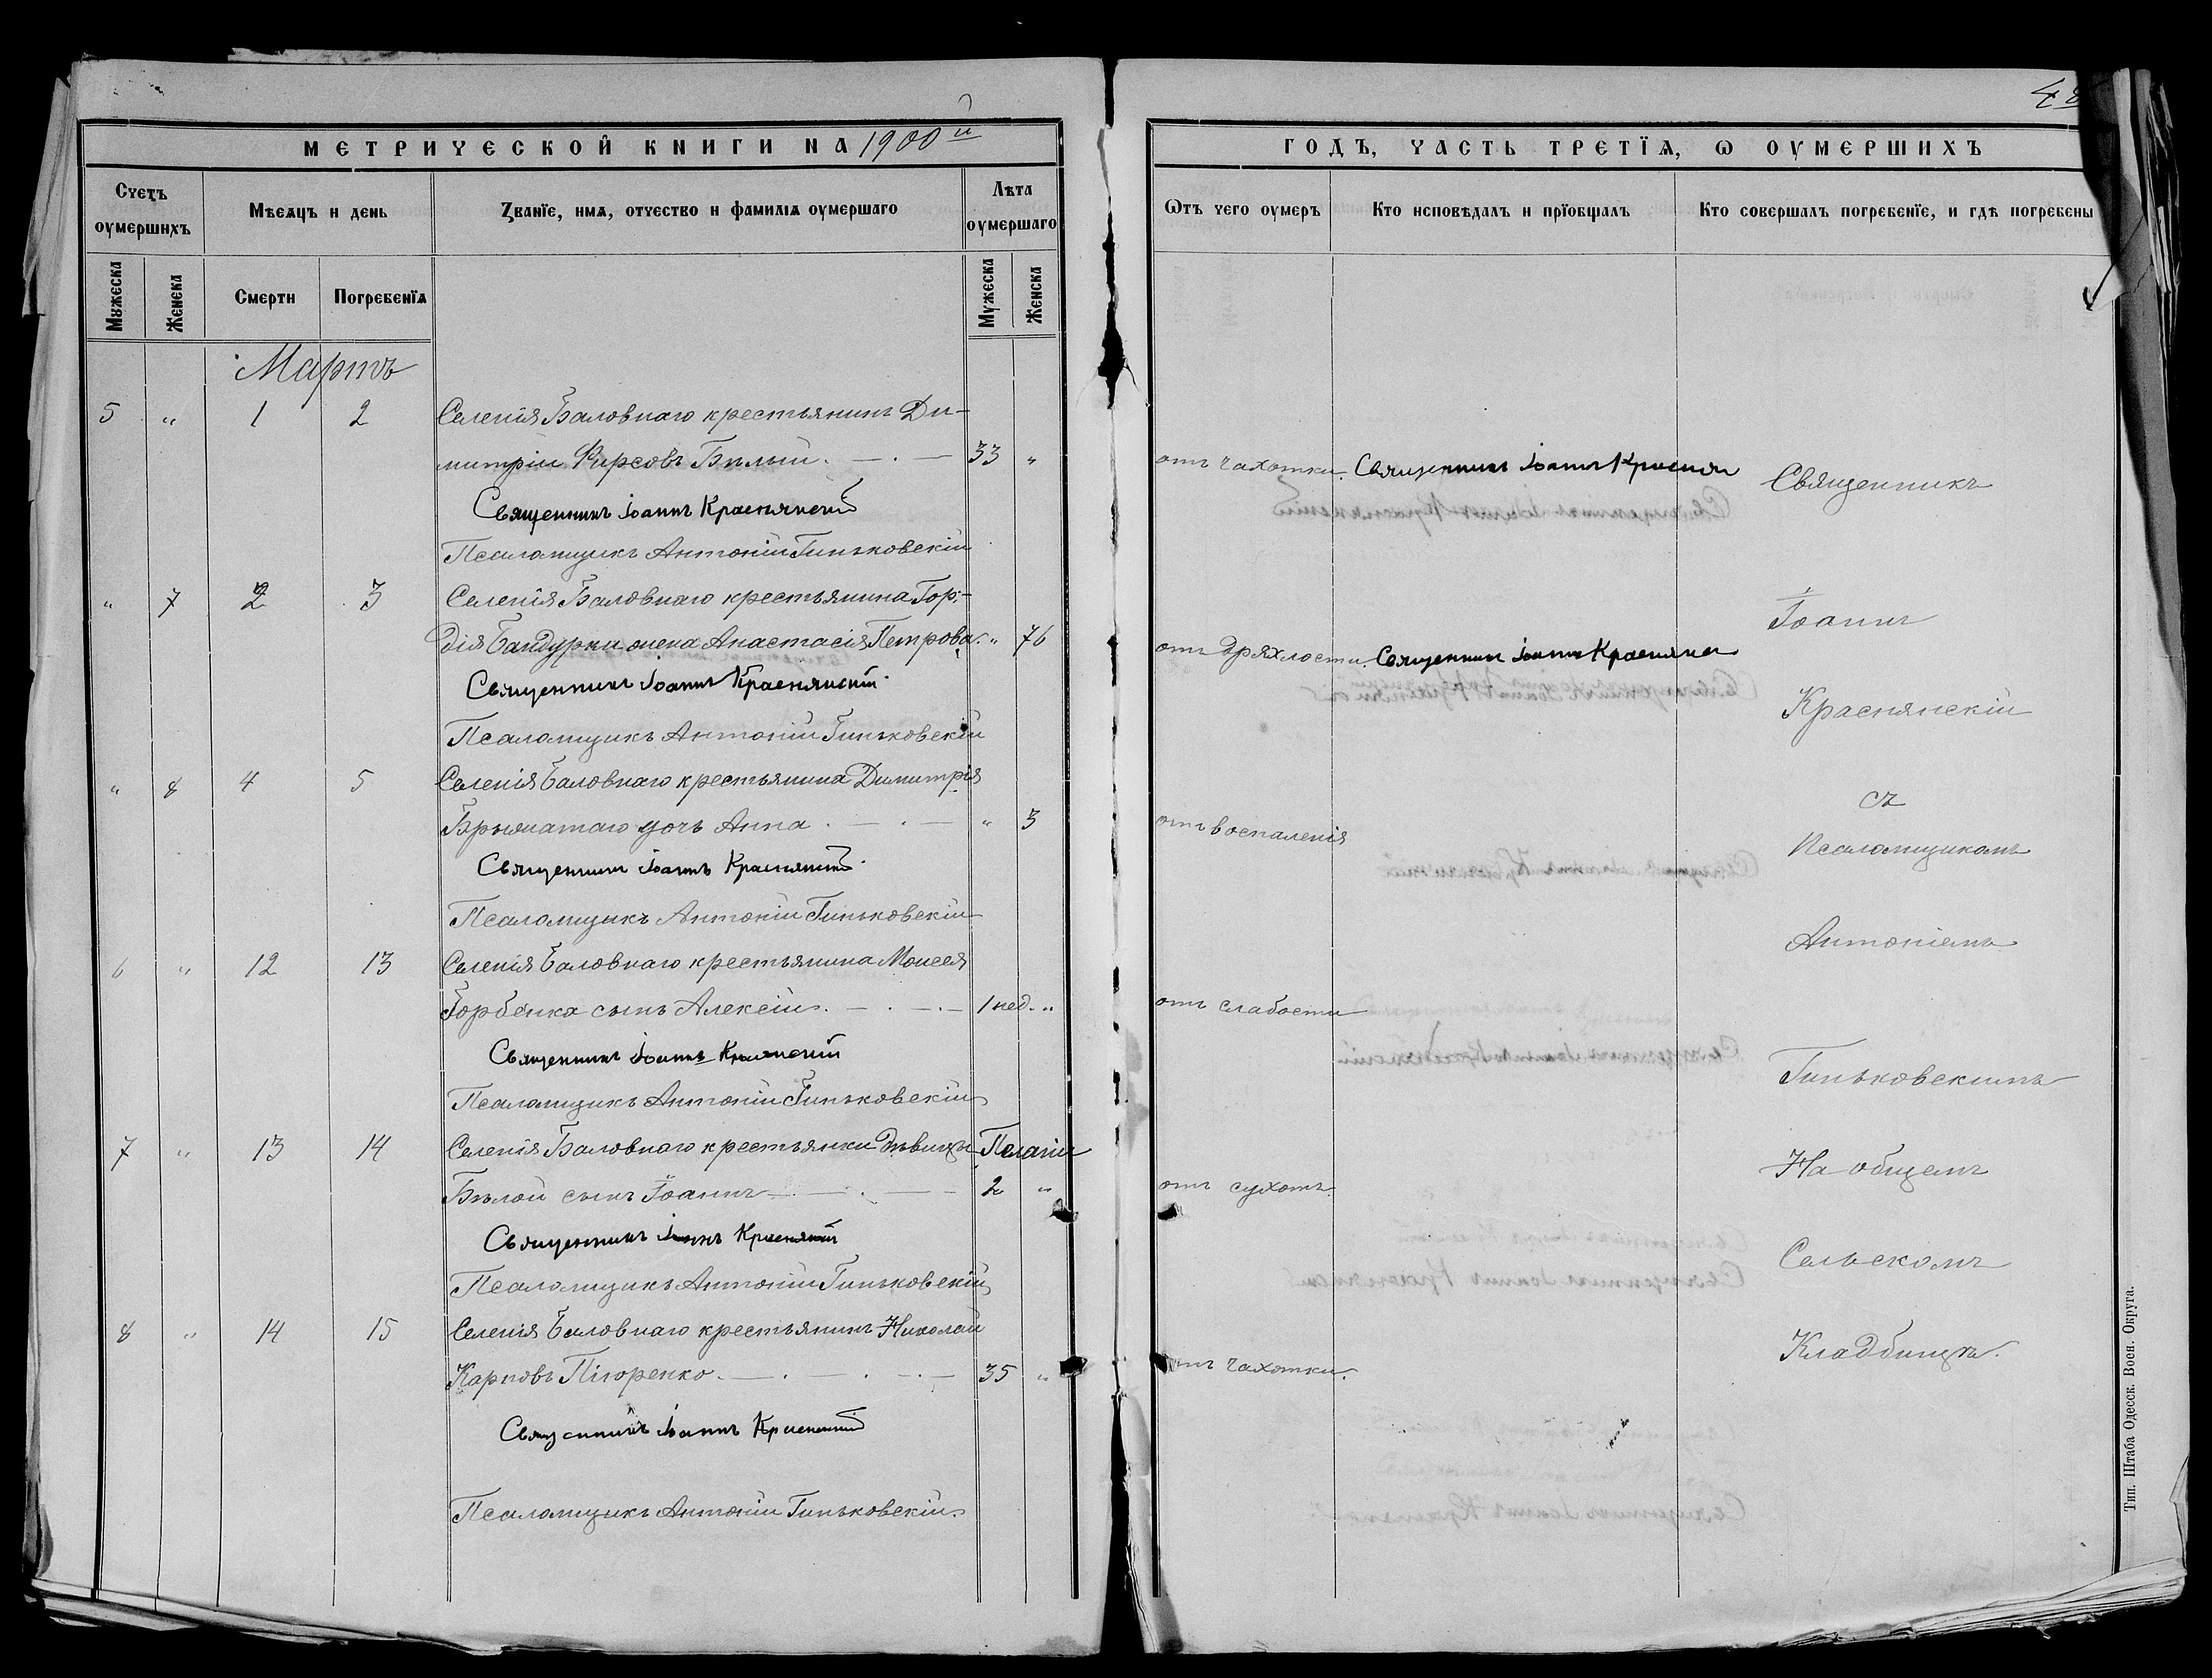 МЕТРИЧЕСКОЙ КНИГИ НА 1900й
Счетъ оумершихъ
Мѣсяцъ и день
Званїе, имѧ, отчество и фамилїѧ оумершаго
Лѣта оумершаго
Мужеска
Женска
Смерти
Погребенїѧ
Мужеска
Женска
Мартъ
5 " 1 2 Селенія Баловнаго крестьянинъ Ди-
митрій Фирсовъ Бѣлый. 33 "
Священникъ Іоаннъ Краснянскій
Псаломщикъ Антоній Гиньковскій
" 7 2 3 Селенія Баловнаго крестьянина Гор-
дія Бандурки жена Анастасія Петрова. " 76
Священникъ Іоаннъ Краснянскій
Псаломщикъ Антоній Гиньковскій
" 8 4 5 Селенія Баловнаго крестьянина Димитрія
дочь Анна " 3
Священникъ Іоаннъ Краснянскій
Псаломщикъ Антоній Гиньковскій
6 " 12 13 Селенія Баловнаго крестьянина Моисея
Горбенка сынъ Алексій. 1 нед. "
Священникъ Іоаннъ Краснянскій
Псаломщикъ Антоній Гиньковскій
7 " 13 14 Селенія Баловнаго крестьянки дѣвицы Пелагіи
Бѣлой сынъ Іоаннъ 2 "
Священникъ Іоаннъ Краснянскій
Псаломщикъ Антоній Гиньковскій
8 " 14 15 Селенія Баловнаго крестьянинъ Николай
Карповъ 35 "
Священникъ Іоаннъ Краснянскій
Псаломщикъ Антоній Гиньковскій.
ГОДЪ, ЧАСТЬ ТРЕТЇѦ, Ѡ ОУМЕРШИХЪ
Ѿтъ чего оумеръ
Кто исповѣдалъ и прїобщалъ
Кто совершалъ погребенїе, и гдѣ погребены
отъ чахотки. Священникъ Іоаннъ
отъ дряхлости. Священникъ Іоаннъ
отъ воспаленія
отъ слабости
отъ сухотъ.
отъ чахотки.
Священникъ
Іоаннъ
Краснянскій
съ
Псаломщикомъ
Антоніемъ
Гиньковскимъ
На общемъ
Сельскомъ
Кладбищѣ.
Тип. Штаба Одесск. Воен. Округа.